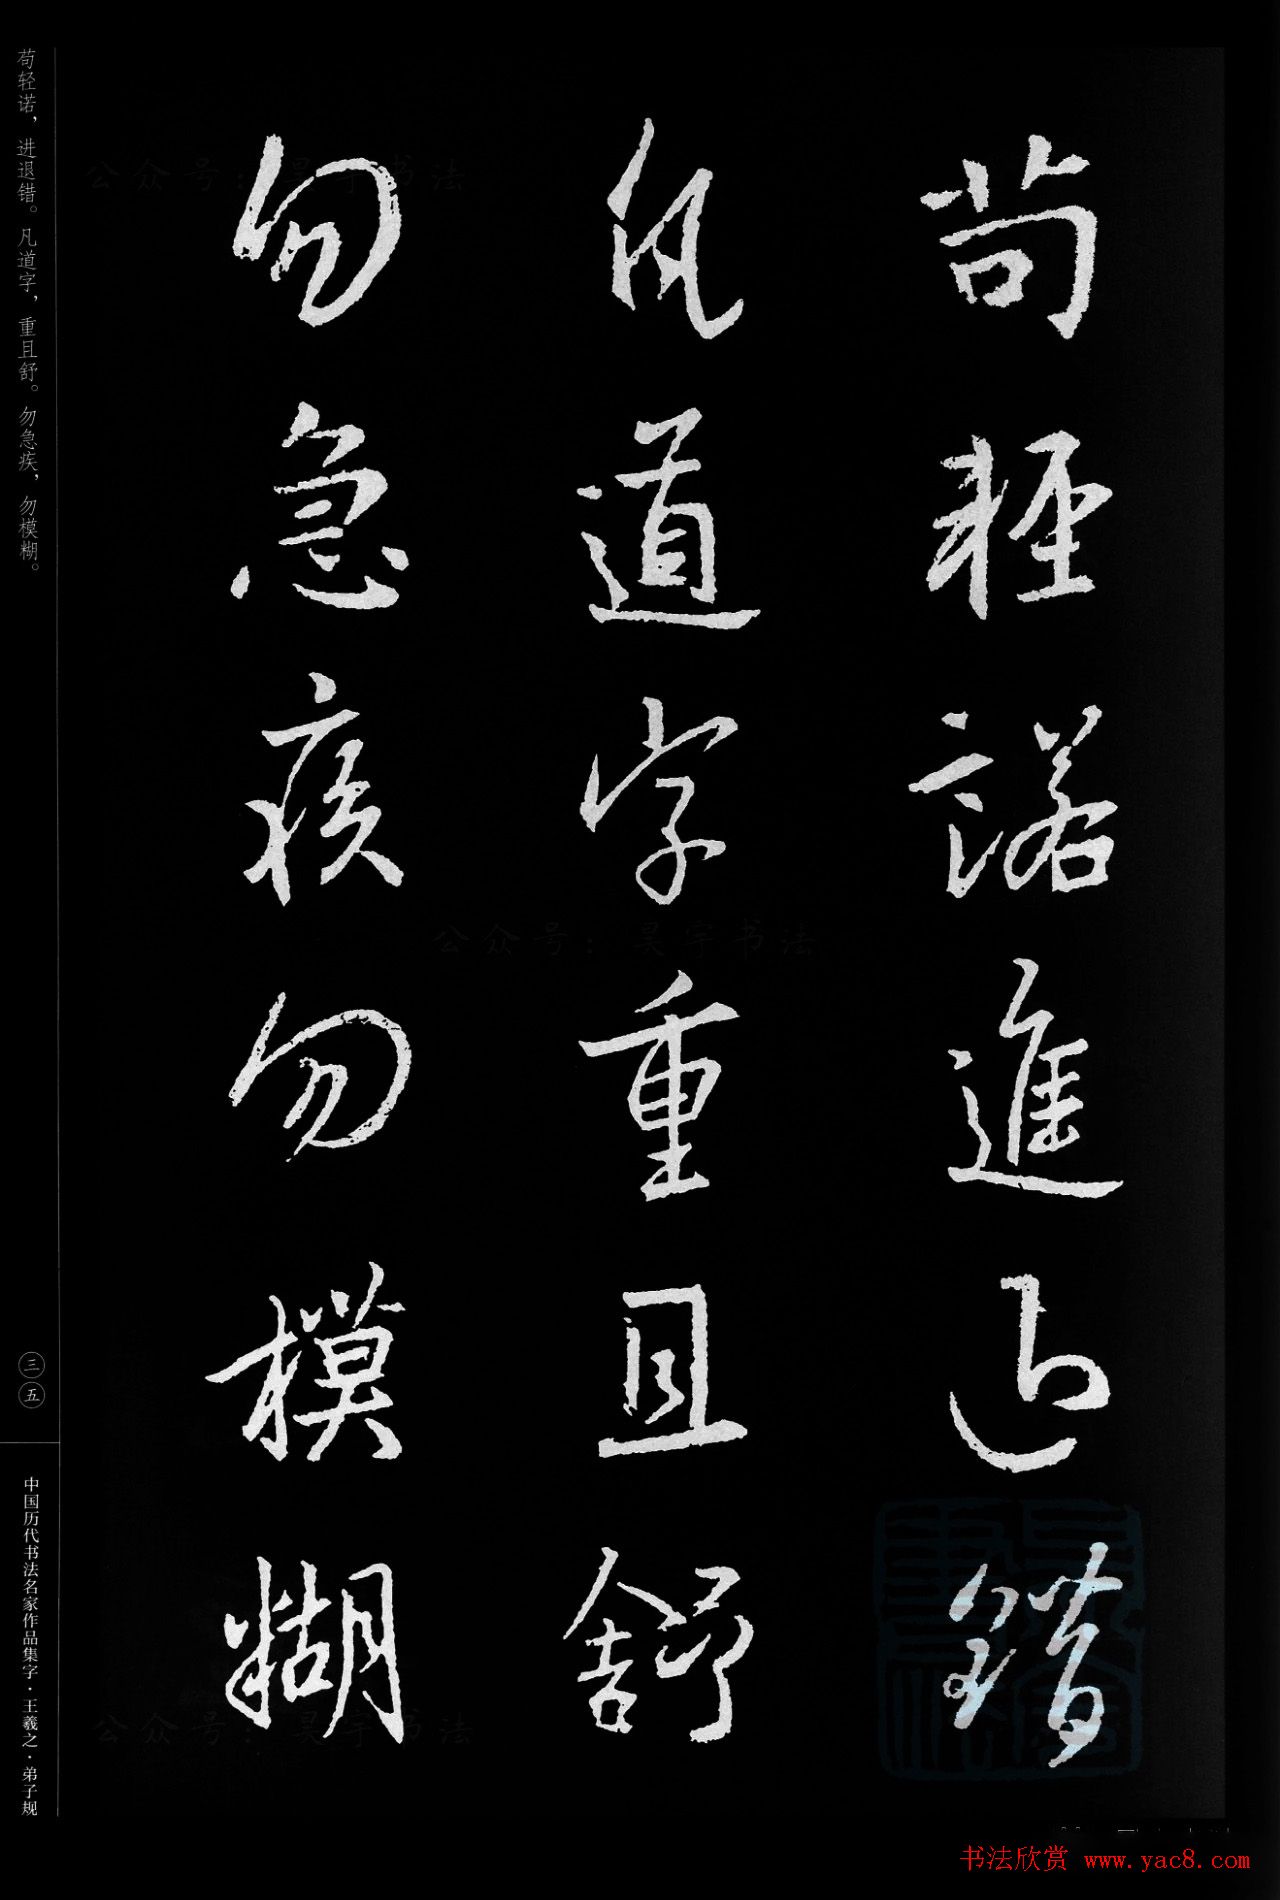 苟輕諾進退錯
凡道字重且舒
勿急疾勿模糊
苟轻诺，进退错。凡道字，重且舒。勿急疾，勿模糊。
三五
中国历代书法名家作品集字·王羲之·弟子规
公众号：昊宇书法
公众号：昊宇书法
公众号：昊宇书法
书法欣赏 www.yac8.com